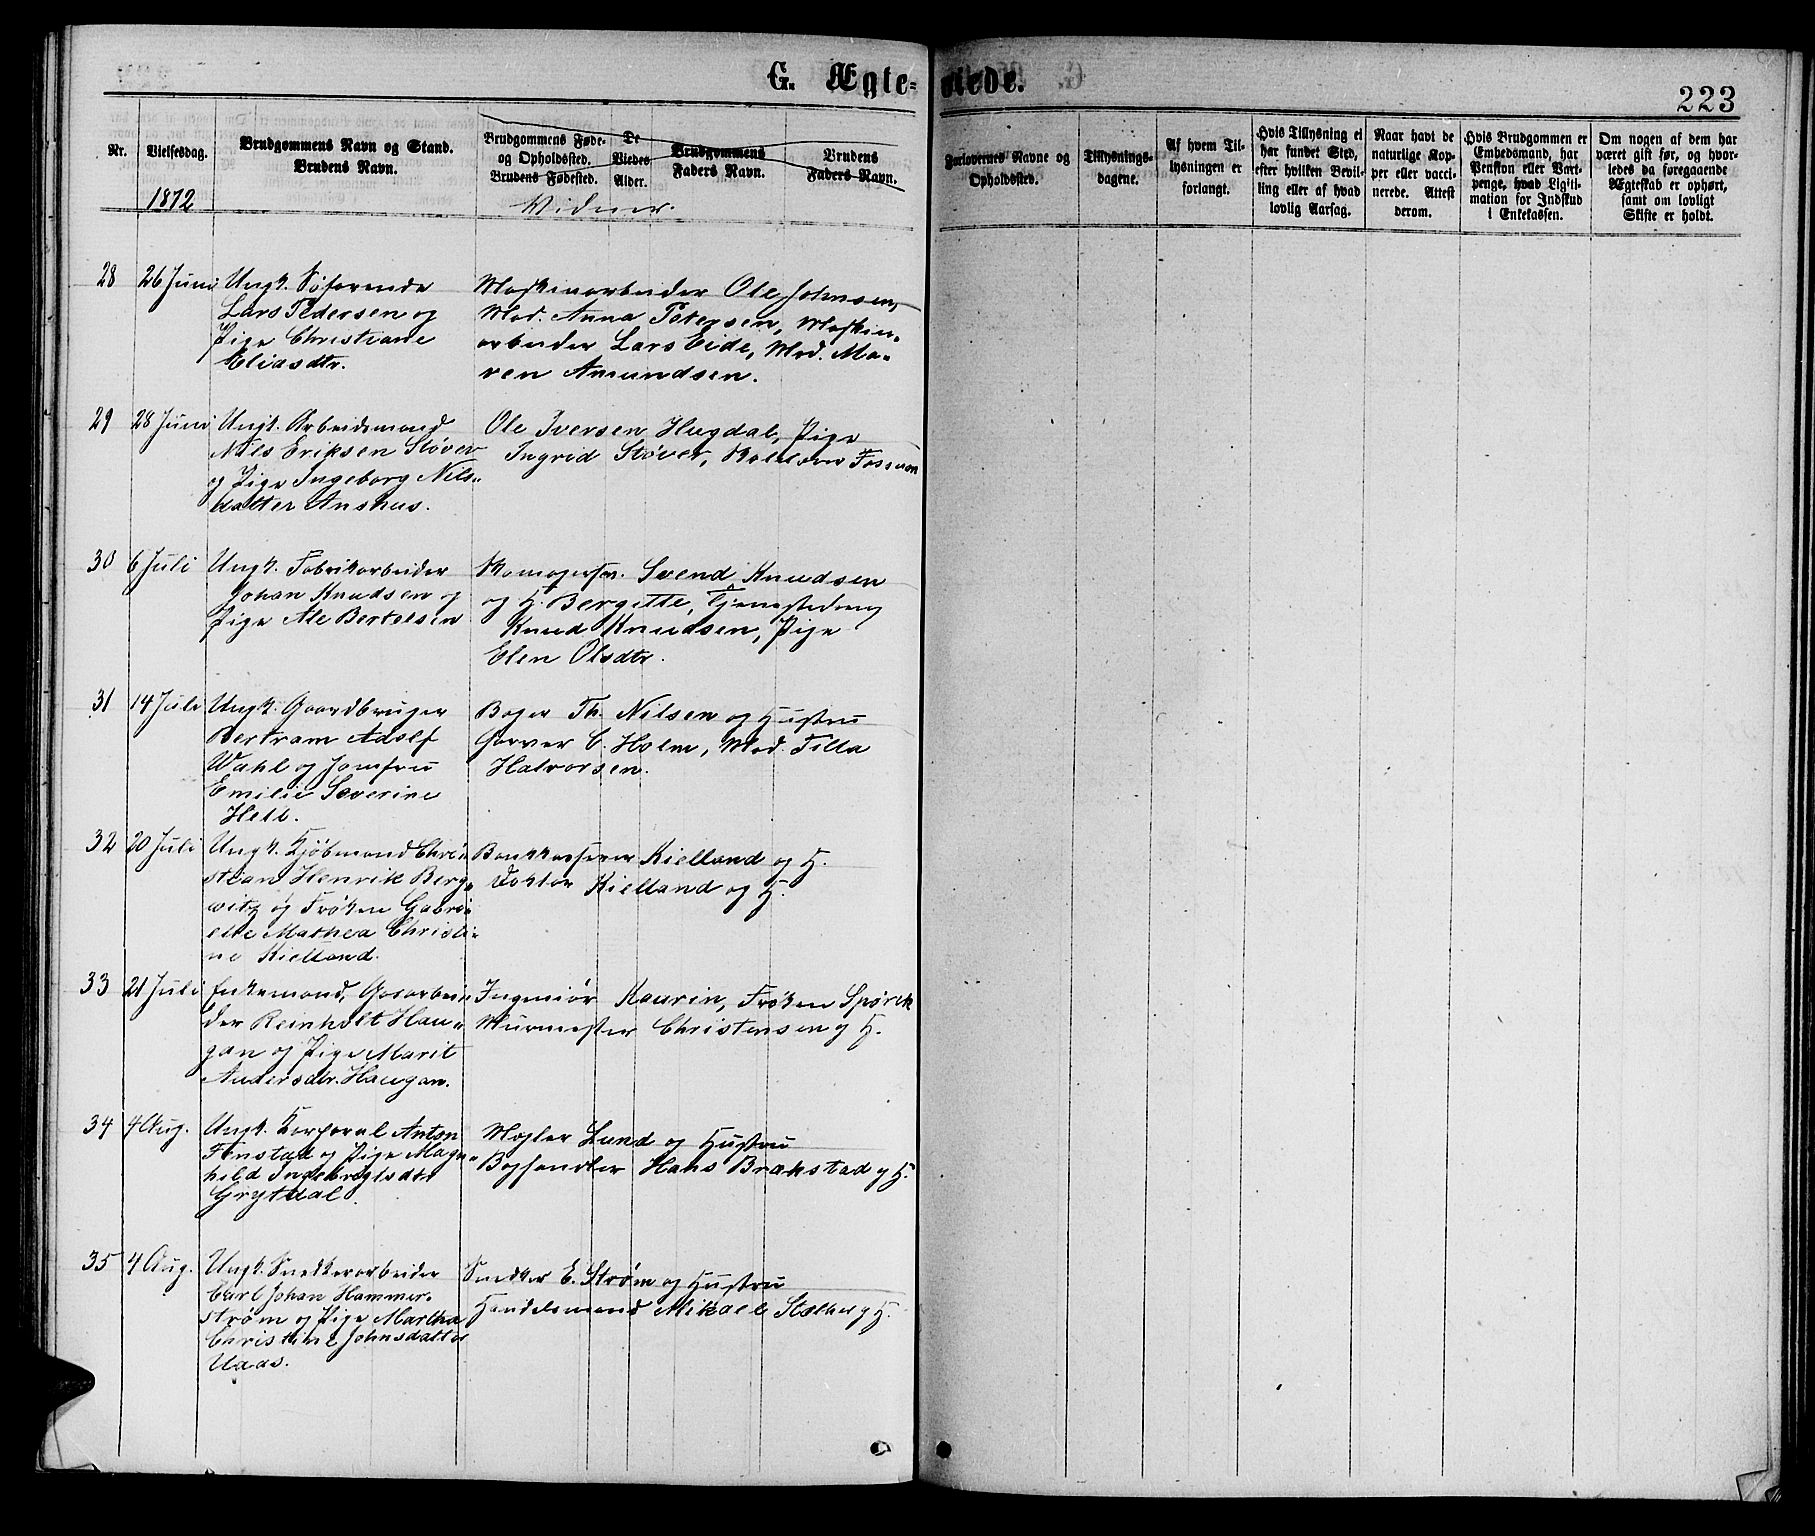 G. Ægteviede.
223
Nr.
Vielsesdag.
Brudgommens Navn og Stand.
Brudens Navn.
Brudgommens Føde-
og Opholdssted.
Brudens Fødested.
De
Viedes
Alder.
Brudgommens
Faders Navn.
Brudens
Faders Navn.
Forlovernes Navne og
Opholdssted.
Tillysnings-
dagene.
Af hvem Til-
lysningen er
forlangt.
Hvis Tillysning ei
har fundet Sted,
efter hvilken Bevil-
ling eller af hvad
lovlig Aarsag.
Naar havt de
naturlige Kop-
per eller vacci-
nerede. Attest
derom.
Hvis Brudgommen er
Embedsmand, har
Pension eller Vart-
penge, hvad Ligiti-
mation for Indskud
i Enkekassen.
Om nogen af dem har
været gift før, og hvor-
ledes da foregaaende
Ægteskab er ophørt,
samt om lovligt
Skifte er holdt.
1872
Vidner.
28 26 Juni Ungk. Søfarende
Lars Pedersen og
Pige Christiane
Eliasdtr.
Maskinarbeider Ole Johnsen,
Mad. Anna Petersen, Maskin-
arbeider Lars Eide, Mad. Ma-
ren Amundsen.
29 28 Juni Ungk. Arbeidsmand
Nils Eriksen Støver
og Pige Ingeborg Nils-
datter Anshus.
Ole Iversen Hugdal, Pige
Ingrid Støver, Fossum
30 6 Juli Ungk. Fabrikarbeider
Johan Knudsen og
Pige Ale Bertelsen
Skomagersv. Svend Knudsen
og H. Bergitte, Tjenestedreng
Knud Knudsen, Pige
Elen Olsdtr.
31 14 Juli Ungk. Gaardbruger
Bertram Adolf
Wahl og Jomfru
Emilie Severine
Hell.
Bager Th. Nilsen og Hustru
Garver C. Holm, Mad. Tilla
Halvorsen.
32 20 Juli Ungk. Kjøbmand Chri-
stian Henrik Berg-
witz og Frøken Gabri-
elle Mathea Christi-
ne Kielland.
Bankkasserer Kielland og H.
Doktor Kielland og H.
33 21 Juli Enkemand, Gasarbei-
der Reinholt Hau-
gan og Pige Marit
Andersdtr. Haugan.
Ingeniør Kaurin, Frøken Spørck
Murmester Christensen og H.
34 4 Aug. Ungk. Korporal Anton
Fenstad og Pige Mag-
hild Indebrigtsdtr
Grytdal.
Mægler Lund og Hustru
Boghandler Hans Brækstad og H.
35 4 Aug. Ungk. Snedkerarbeider
Carl Johan Hammer-
strøm og Pige Martha
Christine Johnsdatter
Uaas.
Snedker E. Strøm og Hustru
Handelsmand Mikael Stælber og H.